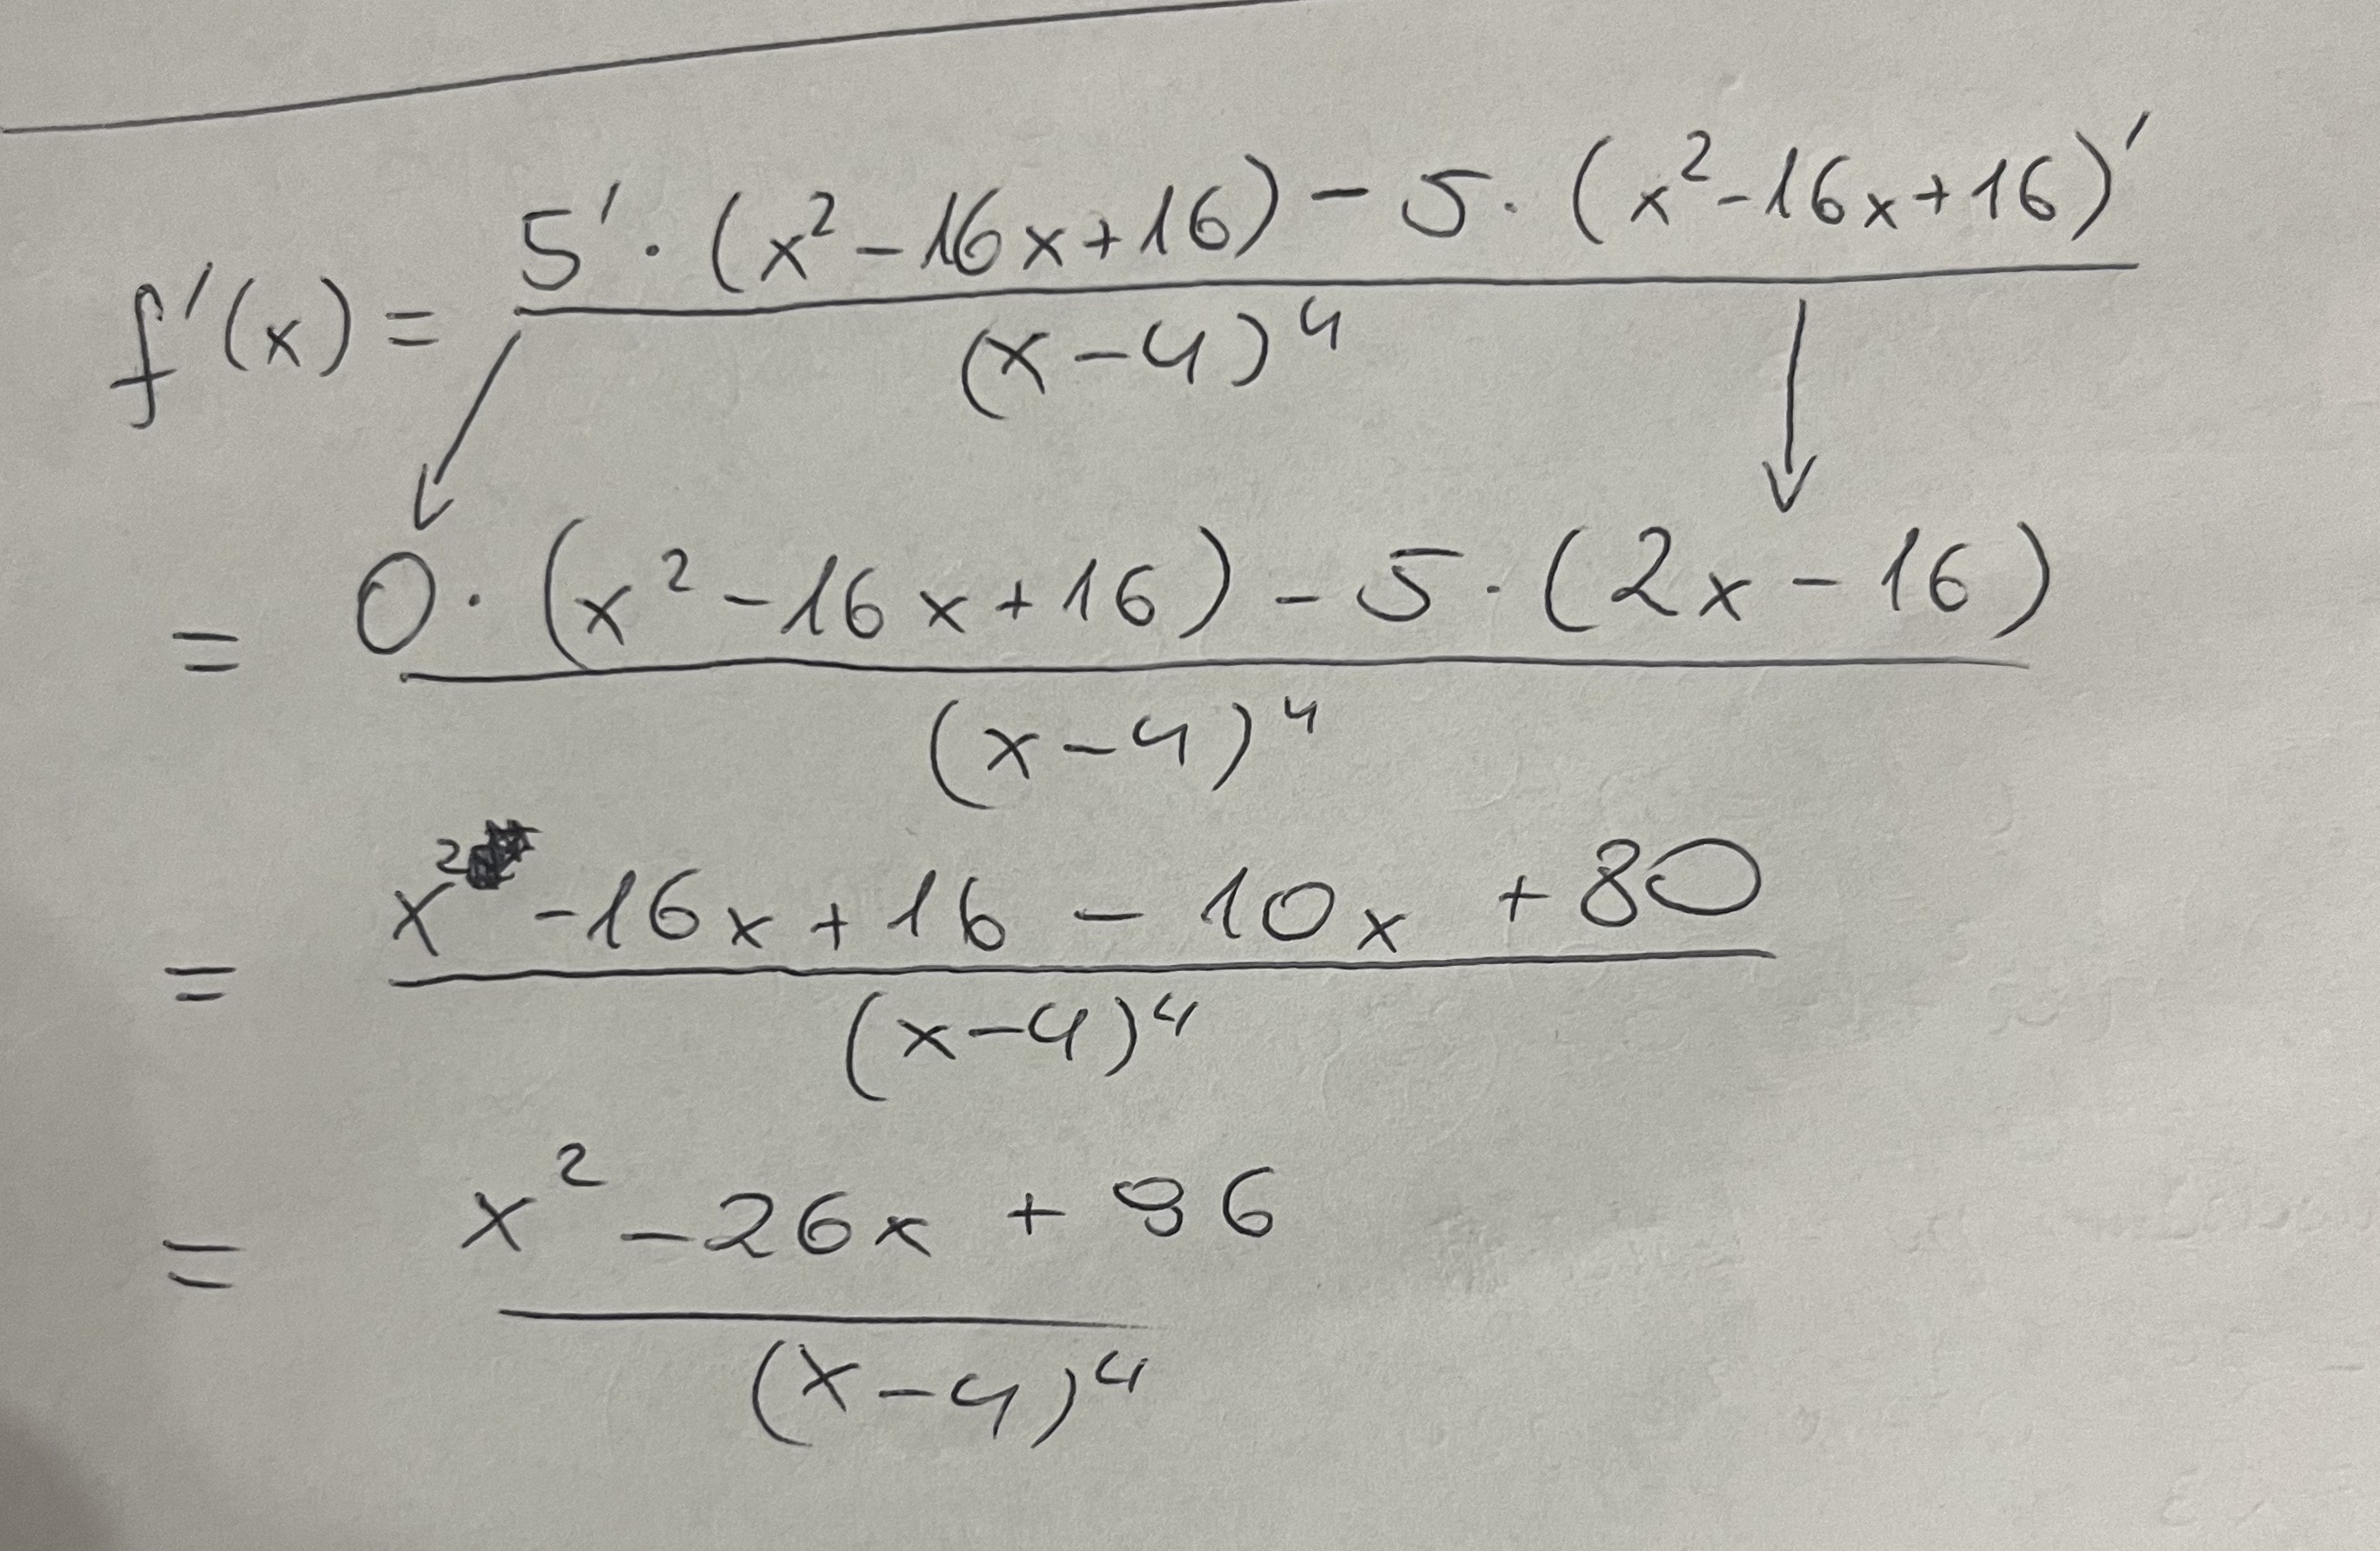 f'(x) = \frac{5' · (x² - 16x + 16) - 5 · (x² - 16x + 16)'}{(x - 4)⁴}
= \frac{0 · (x² - 16x + 16) - 5 · (2x - 16)}{(x - 4)⁴}
= \frac{x² - 16x + 16 - 10x + 80}{(x - 4)⁴}
= \frac{x² - 26x + 96}{(x - 4)⁴}